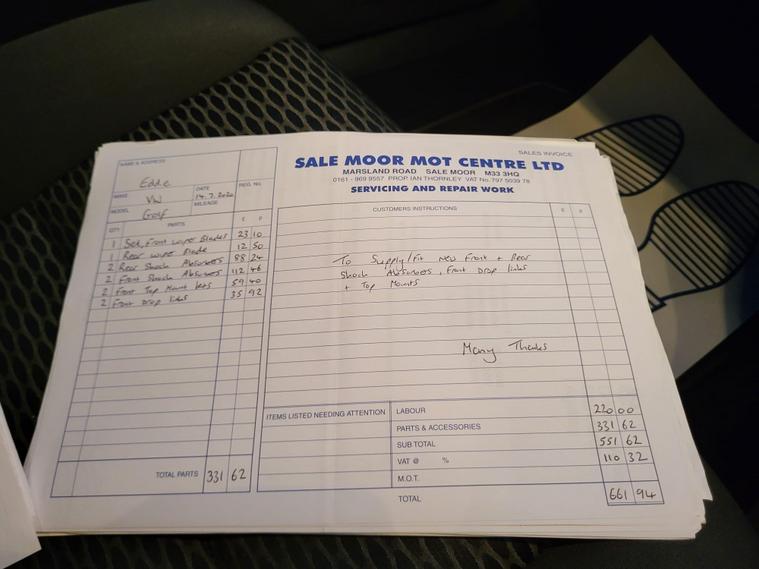 SALES INVOICE
SALE MOOR MOT CENTRE LTD
MARSLAND ROAD SALE MOOR M33 3HQ
0161 - 969 9557 PROP. IAN THORNLEY VAT No. 797 5039 78
SERVICING AND REPAIR WORK
NAME & ADDRESS
Eddie
MAKE VW
DATE 14.7.2020
REG. No.
MODEL Golf
MILEAGE
QTY PARTS £ P
1 Set, Front Wiper Blades 23 10
1 Rear Wiper Blade 12 50
2 Rear Shock Absorbers 88 24
2 Front Shock Absorbers 112 46
2 Front Top Mount kits 59 40
2 Front Drop links 35 92
TOTAL PARTS 331 62
CUSTOMERS INSTRUCTIONS £ P
To Supply/Fit New Front + Rear
Shock Absorbers, Front Drop links
+ Top Mounts
Many Thanks
ITEMS LISTED NEEDING ATTENTION
LABOUR 220 00
PARTS & ACCESSORIES 331 62
SUB TOTAL 551 62
VAT @ % 110 32
M.O.T.
TOTAL 661 94